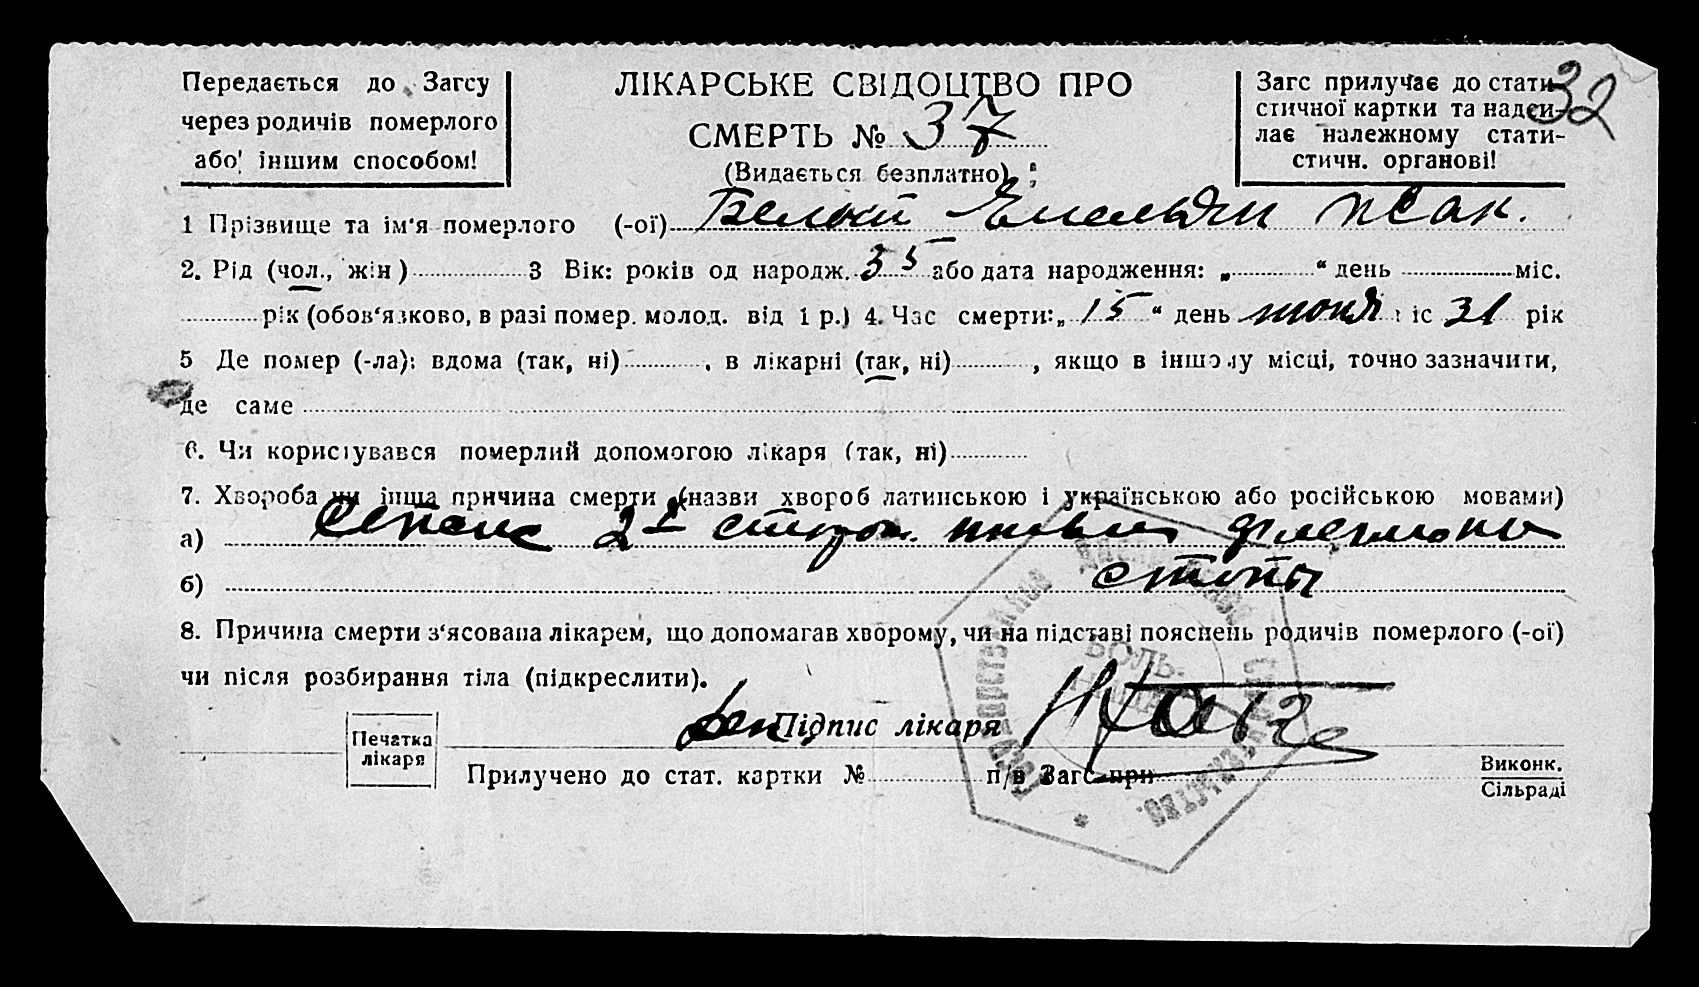 32
Передається до Загсу
через родичів померлого
або іншим способом!
ЛІКАРСЬКЕ СВІДОЦТВО ПРО
СМЕРТЬ № 37
(Видається безплатно)
Загс прилучає до стати-
стичної картки та надси-
лає належному стати-
стичн. органові!
1 Прізвище та ім'я померлого (-ої) Белый Емельян Исак.
2. Рід (чол., жін) 3 Вік: років од народж. 35 або дата народження: „ “ день міс.
рік (обов'язково, в разі помер. молод. від 1 р.) 4. Час смерти: „ 15 “ день июня міс 31 рік
5 Де помер (-ла): вдома (так, ні) , в лікарні (так, ні) , якщо в іншому місці, точно зазначити,
де саме
6. Чи користувався померлий допомогою лікаря (так, ні)
7. Хвороба чи інша причина смерти (назви хвороб латинською і українською або російською мовами)
а) Сепсис 2х сторон. флегмоны
б) стопы
8. Причина смерти з'ясована лікарем, що допомагав хворому, чи на підставі пояснень родичів померлого (-ої)
чи після розбирання тіла (підкреслити).
Печатка
лікаря
Підпис лікаря
Прилучено до стат. картки № п/в Загс при
Виконк.
Сільраді
БОЛЬ-